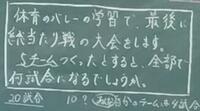 体育のバレーの学習で、最後に
総当たり戦の大会をします。
5チームつくったとすると、全部で
何試合になるでしょうか。
20試合 10? 自分のチームは4試合